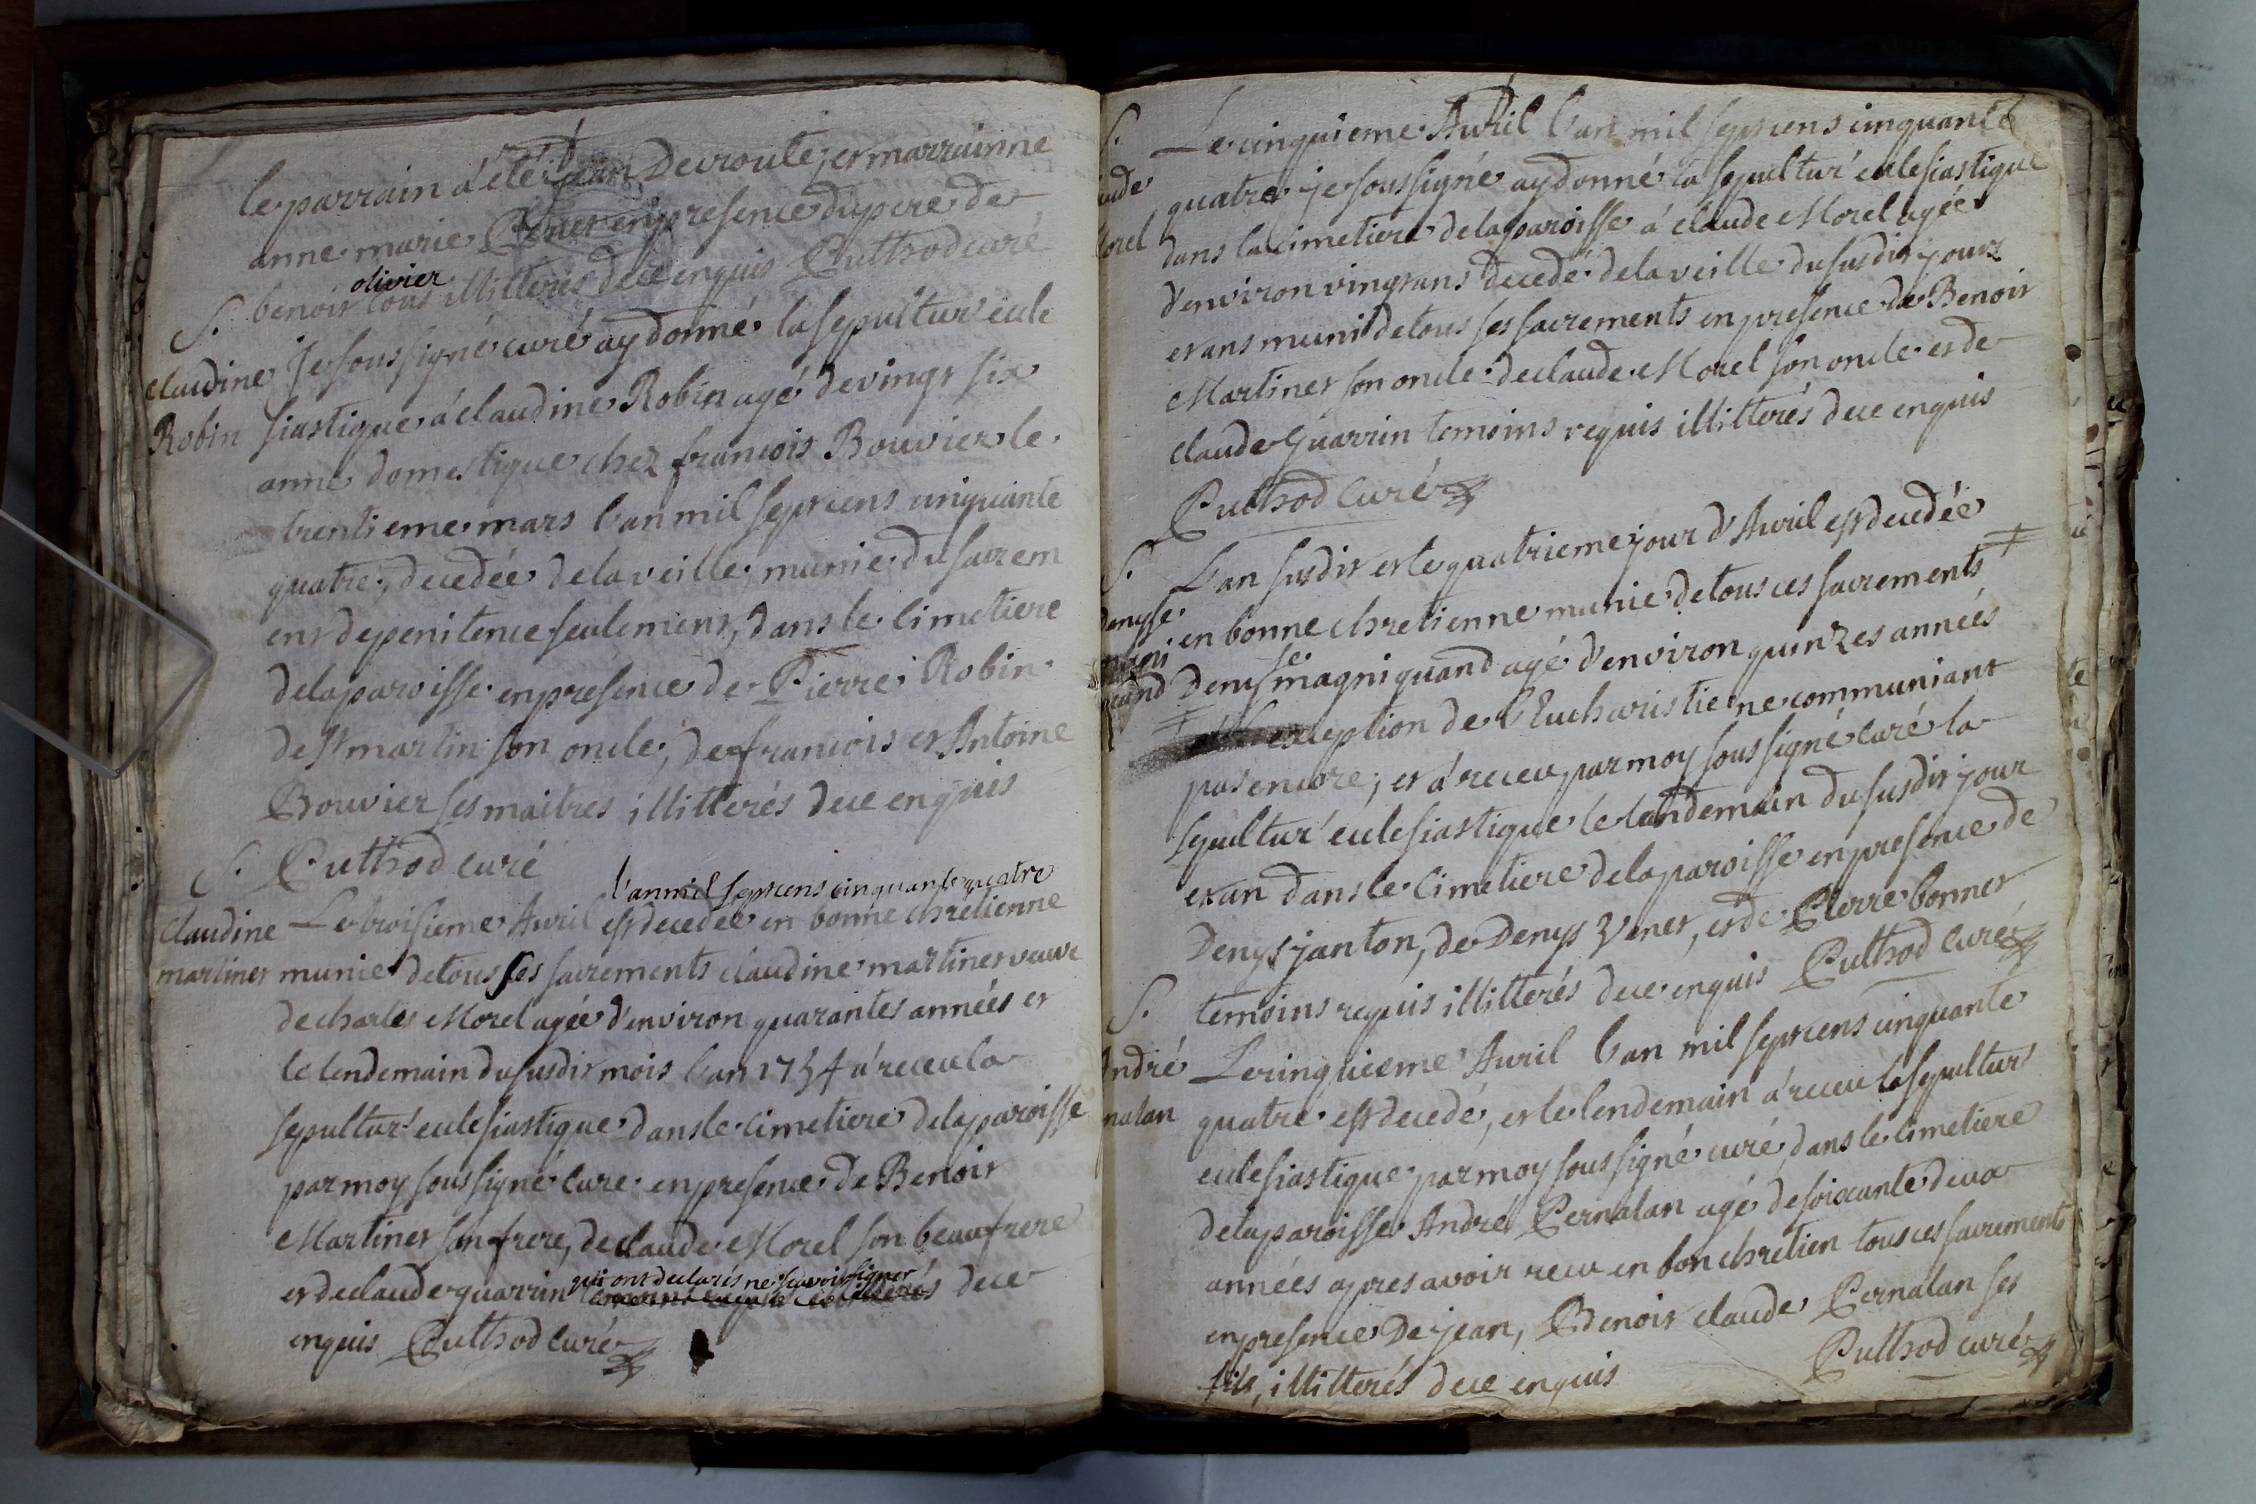 le parrain a été jean Devroute, et marrainne
anne marie en presence du pere de
benoit olivier tous illitterés de ce enquis Puthod curé
S.
claudine
Robin
Je soussigné curé ay donné la sepultur' eccle
siastique á claudine Robin agé de vingt six
anné domestique chez francois Bouvier le
trentieme mars l'an mil sept cens cinquante
quatre, decedée de la veille, munie du sacrem
ent de penitence seulement, dans le cimetiere
de la paroisse en presence de Pierre Robin
de st martin son oncle, de francois et Antoine
Bouvier ses maitres illitterés de ce enquis
Puthod curé
S.
Claudine
martinet
l'an mil sept cens cinquante quatre
Le troisieme Avril est decedée en bonne chretienne
munie de tous ses sacrements claudine martinet veuve
de charles Morel agée d'environ quarantes années et
le lendemain du susdit mois l'an 1754 a receu la
sepultur' ecclesiastique dans le cimetiere de la paroisse
par moy soussigné curé en presence de Benoit
Martinet son frere, de claude Morel son beaufrere
qui ont declarés ne scavoir signer
et de claude quarrin temoins requis illitterés de ce
enquis Puthod curé
S.
aude
orel
Le cinquieme Avril l'an mil sept cens cinquante
quatre je soussigné ay donné la sepultur' ecclesiastique
dans la cimetiere de la paroisse á claude Morel agée
d'environ vingt ans decedé de la veille du susdit jour
et ans muni de tous ses sacrements en presence de Benoit
Martinet son oncle de claude Morel son oncle et de
claude Guarrin temoins requis illitterés de ce enquis
Puthod Curé
S.
Denyse
quand
L'an susdit et le quatrieme jour d'Avril est decedée
en bonne chretienne munie de tous ces sacrements ‡
Denyse magniquand agé d'environ quinzes années
‡ exception de l'Eucharistie ne communiant
pas encore, et a receu par moy soussigné curé la
sepultur' ecclesiastique le landemain du susdit jour
et an dans le cimetiere de la paroisse en presence de
Denys janton, de Denys Venet, et de Pierre bonnet
temoins requis illitterés de ce enquis Puthod Curé
S.
André
nalan
Le cinquieme Avril l'an mil sept cens cinquante
quatre est decedé, et le lendemain a receu la sepultur'
ecclesiastique par moy soussigné curé, dans le cimetiere
de la paroisse André Pernalan agé de soixante deux
années apres avoir receu en bon chretien tous ces sacrements
en presence De jean, Benoit claude Pernalan ses
fils, illitterés de ce enquis Puthod curé